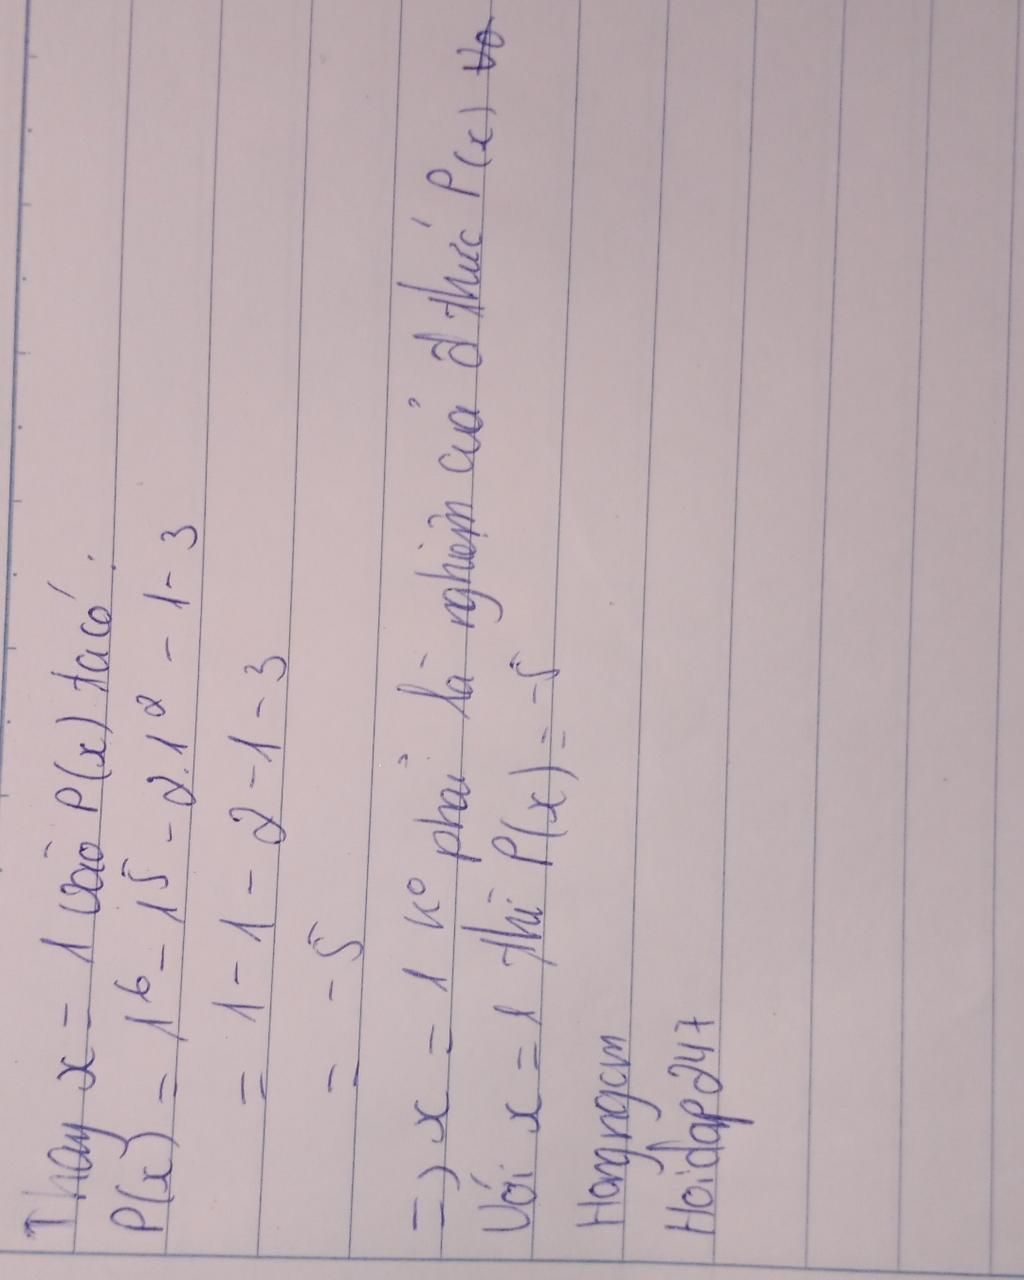 Thay x = 1 vào P(x) ta có:
P(x) = 1⁶ - 1⁵ - 2.1² - 1 - 3
= 1 - 1 - 2 - 1 - 3
= - 5
=) x = 1 kº phải là nghiệm của đ thức P(x)
Với x = 1 thì P(x) = -5
Hongngcm
Hoidap247